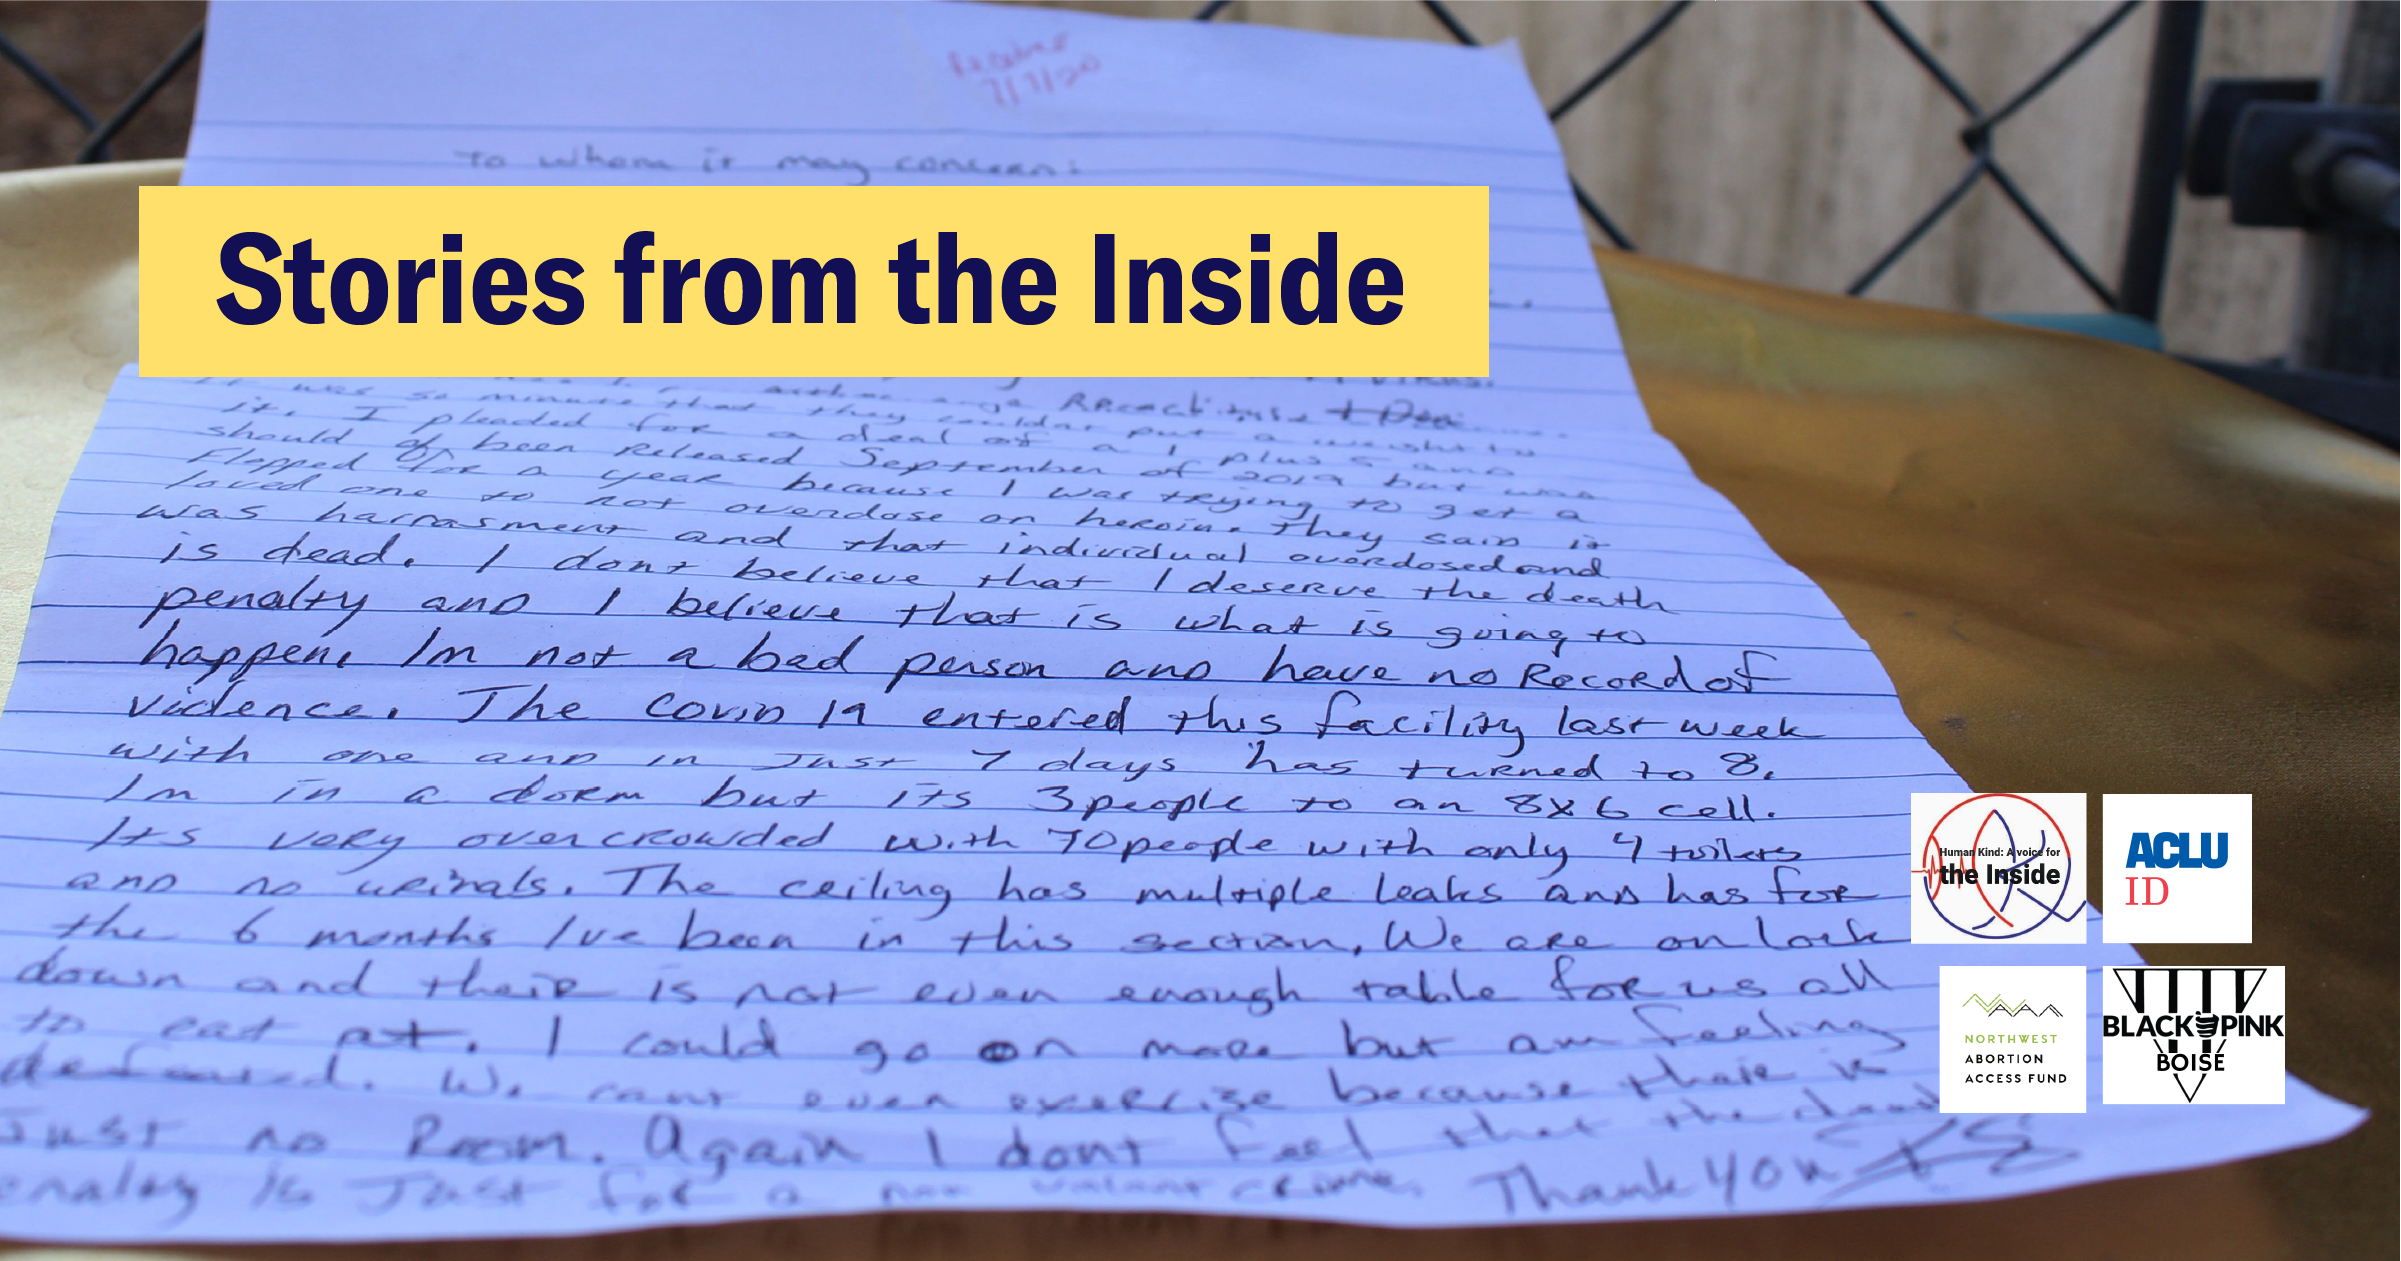 7/7/20
To whom it may concern:
Stories from the Inside
it. I pleaded for a deal of a 1 plus 5 and
should of been Released September of 2019 but was
flopped for a year because I was trying to get a
loved one to not overdose on heroin. They said it
was harrasment and that individual overdosed and
is dead. I dont believe that I deserve the death
penalty and I believe that is what is going to
happen. Im not a bad person and have no Record of
violence. The Covid 19 entered this facility last week
with one and in Just 7 days has turned to 8.
Im in a dorm but its 3 people to an 8x6 cell.
Its very overcrowded with 70 people with only 4 toilets
and no urinals. The ceiling has multiple leaks and has for
the 6 months Ive been in this section. We are on lock
down and their is not even enough table for us all
to eat at. I could go on more but am feeling
defeated. We cant even exercise because their is
Just no Room. Again I dont feel that the
penalty is Just for a non violent crime. Thank you
Human Kind: A voice for
the Inside
ACLU
ID
NORTHWEST
ABORTION
ACCESS FUND
BLACK PINK
BOISE